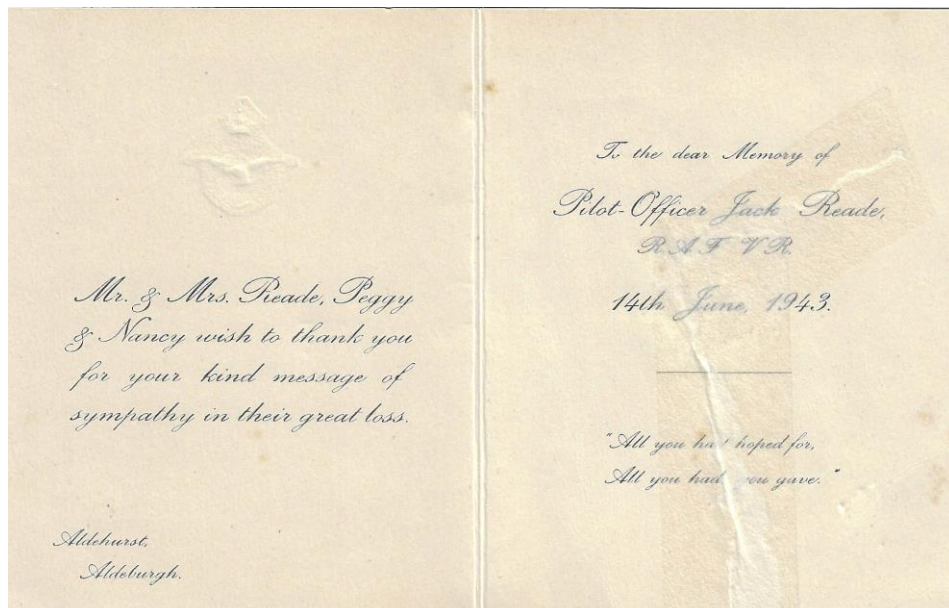 Mr. & Mrs. Reade, Peggy
& Nancy wish to thank you
for your kind message of
sympathy in their great loss.
Aldehurst,
Aldeburgh.
To the dear Memory of
Pilot-Officer Jack Reade,
R.A.F V.R.
14th June, 1943.
"All you had hoped for,
All you had you gave."